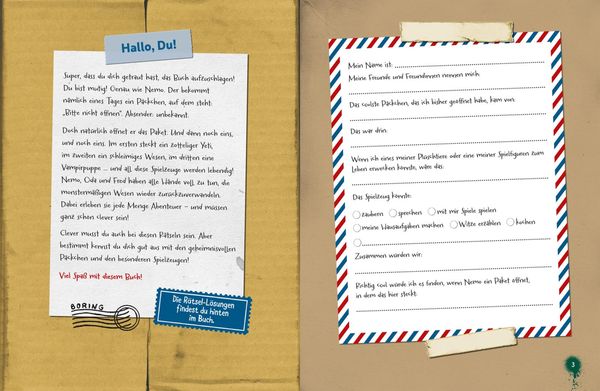 Hallo, Du!
Super, dass du dich getraut hast, das Buch aufzuschlagen!
Du bist mutig! Genau wie Nemo. Der bekommt
nämlich eines Tages ein Päckchen, auf dem steht:
„Bitte nicht öffnen“. Absender: unbekannt.
Doch natürlich öffnet er das Paket. Und dann noch eins,
und noch eins. Im ersten steckt ein zotteliger Yeti,
im zweiten ein schleimiges Wesen, im dritten eine
Vampirpuppe ... und all diese Spielzeuge werden lebendig!
Nemo, Oda und Fred haben alle Hände voll zu tun, die
monstermäßigen Wesen wieder zurückzuverwandeln.
Dabei erleben sie jede Menge Abenteuer – und müssen
ganz schön clever sein!
Clever musst du auch bei diesen Rätseln sein. Aber
bestimmt kennst du dich gut aus mit den geheimnisvollen
Päckchen und den besonderen Spielzeugen!
Viel Spaß mit diesem Buch!
BORING
Die Rätsel-Lösungen
findest du hinten
im Buch.
Mein Name ist:
Meine Freunde und Freundinnen nennen mich:
Das coolste Päckchen, das ich bisher geöffnet habe, kam von:
Das war drin:
Wenn ich eines meiner Plüschtiere oder eine meiner Spielfiguren zum
Leben erwecken könnte, wäre das:
Das Spielzeug könnte:
zaubern sprechen mit mir Spiele spielen
meine Hausaufgaben machen Witze erzählen kochen
Zusammen würden wir:
Richtig cool würde ich es finden, wenn Nemo ein Paket öffnet,
in dem das hier steckt:
3